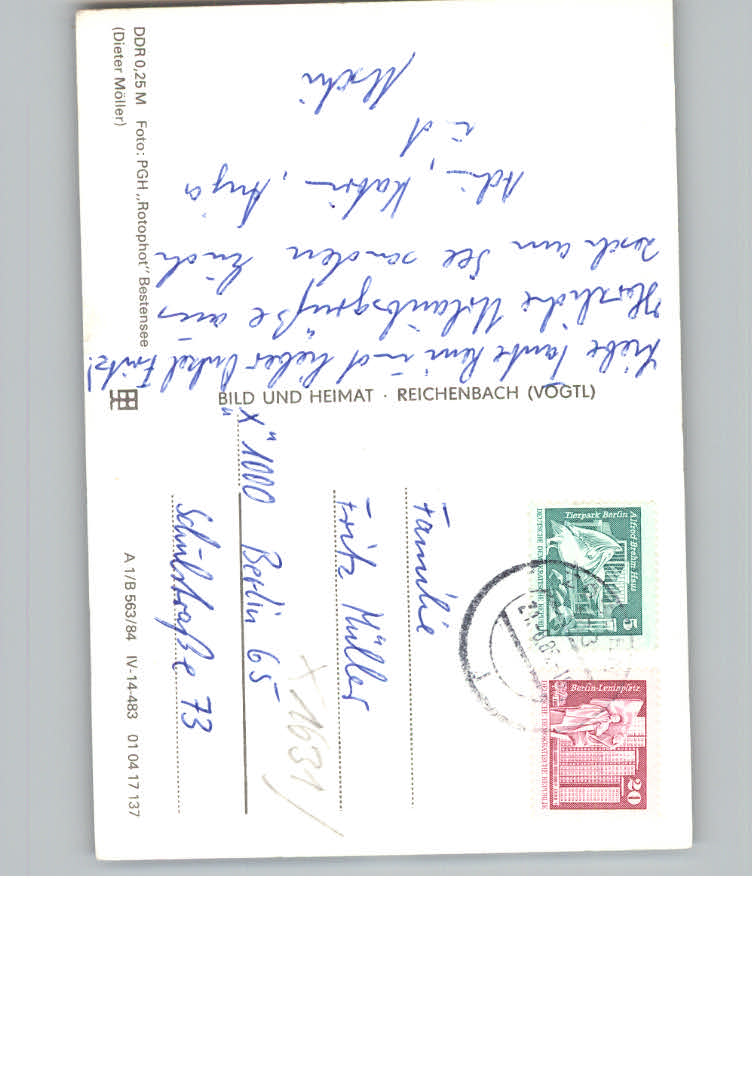 Liebe Tante Leni und lieber Onkel Fritz!
Herzliche Urlaubsgrüße aus
am See senden Euch
Adi, Katrin, Anja
und
Uschi
DDR 0,25 M Foto: PGH „Rotophot“ Bestensee
(Dieter Möller)
BILD UND HEIMAT · REICHENBACH (VOGTL)
A 1/B 563/84 IV-14-483 01 04 17 137
Familie
Fritz Müller
X "1000 Berlin 65
Schulstraße 73
X 1631/
Alfred Brehm Haus
Tierpark Berlin
5
DEUTSCHE DEMOKRATISCHE REPUBLIK
20
Berlin-Leninplatz
DEUTSCHE DEMOKRATISCHE REPUBLIK